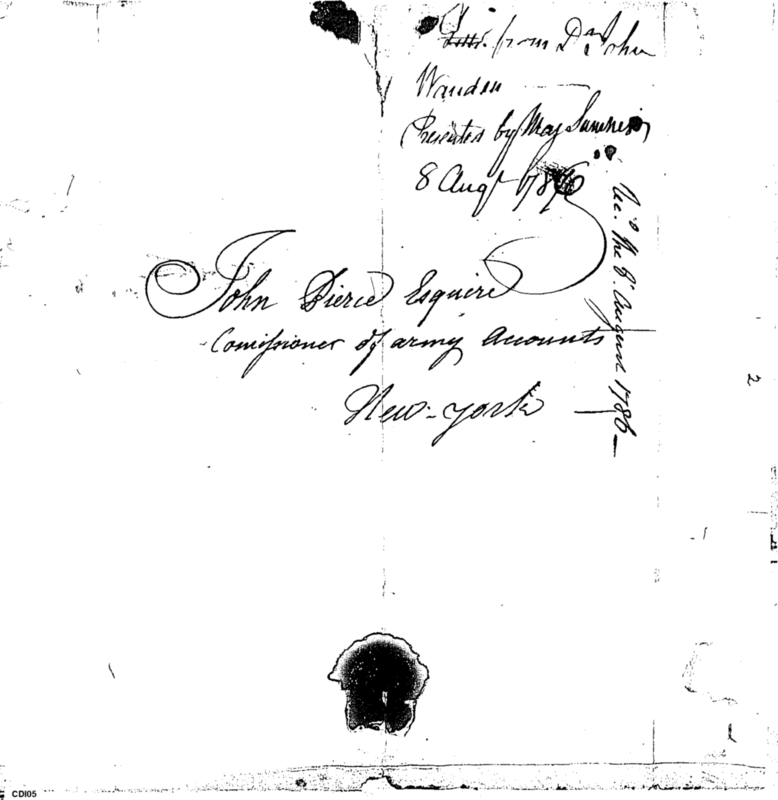 from Dr John
Warden
Presented by Maj Sumner
8 Augt 1786
John Pierce Esquire
Comissioner of army Accounts
New-york
Rec. the 8. August 1786
2
CDI05